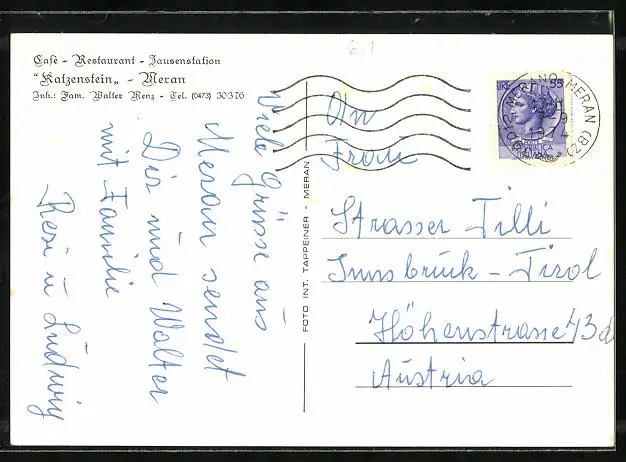 6.1
Café - Restaurant - Jausenstation
"Katzenstein„ - Meran
Inh.: Fam. Walter Menz - Tel. (0473) 30376
Viele Grüsse aus
Meran sendet
Dir und Walter
mit Familie
Resi u Ludwig
FOTO INT. TAPPEINER - MERAN
LIRE 55
MERANO - MERAN (BZ)
1974
An
Frau
Strasser Tilli
Innsbruck - Tirol
Höhenstrasse 43d
Austria